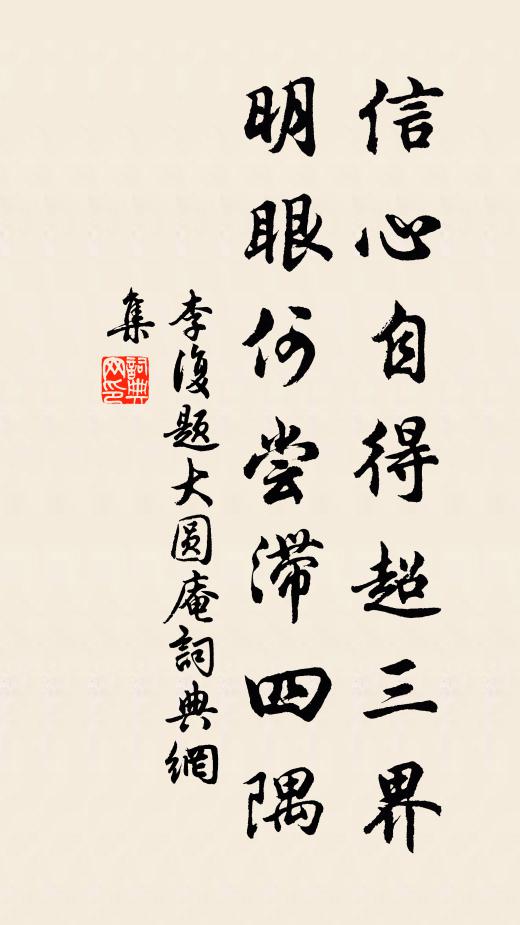 信心自得超三界
明眼何尝滞四隅
李復题大圓庵詞典網
集
詞典网印